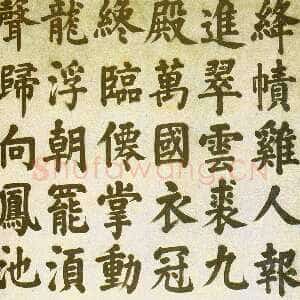 絳幘雞人報
進翠雲裘九
殿萬國衣冠
終臨僊掌動
龍浮朝罷湏
聲歸向鳳池
ShufaWang.CN